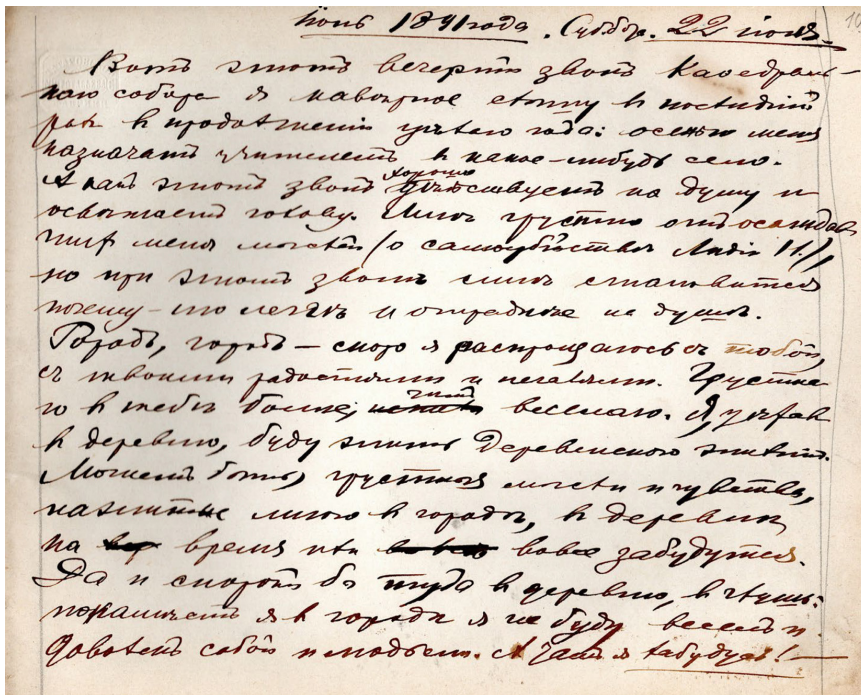 Іюнь 1891 года. Суббот. 22 іюня.
Вотъ этотъ вечерній звонъ Каѳедраль-
наго собора я навѣрное слышу въ послѣдній
разъ въ продолженіи цѣлаго года: осенью меня
назначатъ учителемъ въ какое-нибудь село.
А какъ этотъ звонъ хорошо дѣйствуетъ на душу и
освѣжаетъ голову. Мнѣ грустно отъ осаждаю
щихъ меня мыслей (о самоубійствѣ Лидіи И.),
но при этомъ звонѣ мнѣ становится
почему-то легче и отраднѣе на душѣ.
Городъ, городъ — скоро я распрощаюсь съ тобой,
съ твоими радостями и печалями. Грустна-
го въ тебѣ болѣе, чѣмъ веселаго. Я уѣду
въ деревню, буду жить деревенскою жизнію.
Можетъ быть, грустныя мысли и чувства,
нажитыя мною въ городѣ, въ деревнѣ
на время или вовсе забудутся.
Да и скорѣй бы туда въ деревню, въ глушь:
покамѣстъ я въ городѣ я не буду веселъ и
доволенъ собой и людьми. А тамъ я забудусь! —